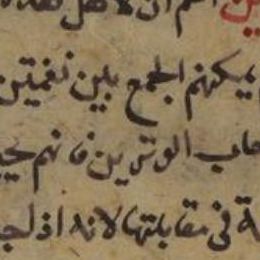 ين اسم ان لاهل هذه
يمكنهم الجمع بين نغمتين
الوترين فانهم
ة في مقابلتها لانه اذ